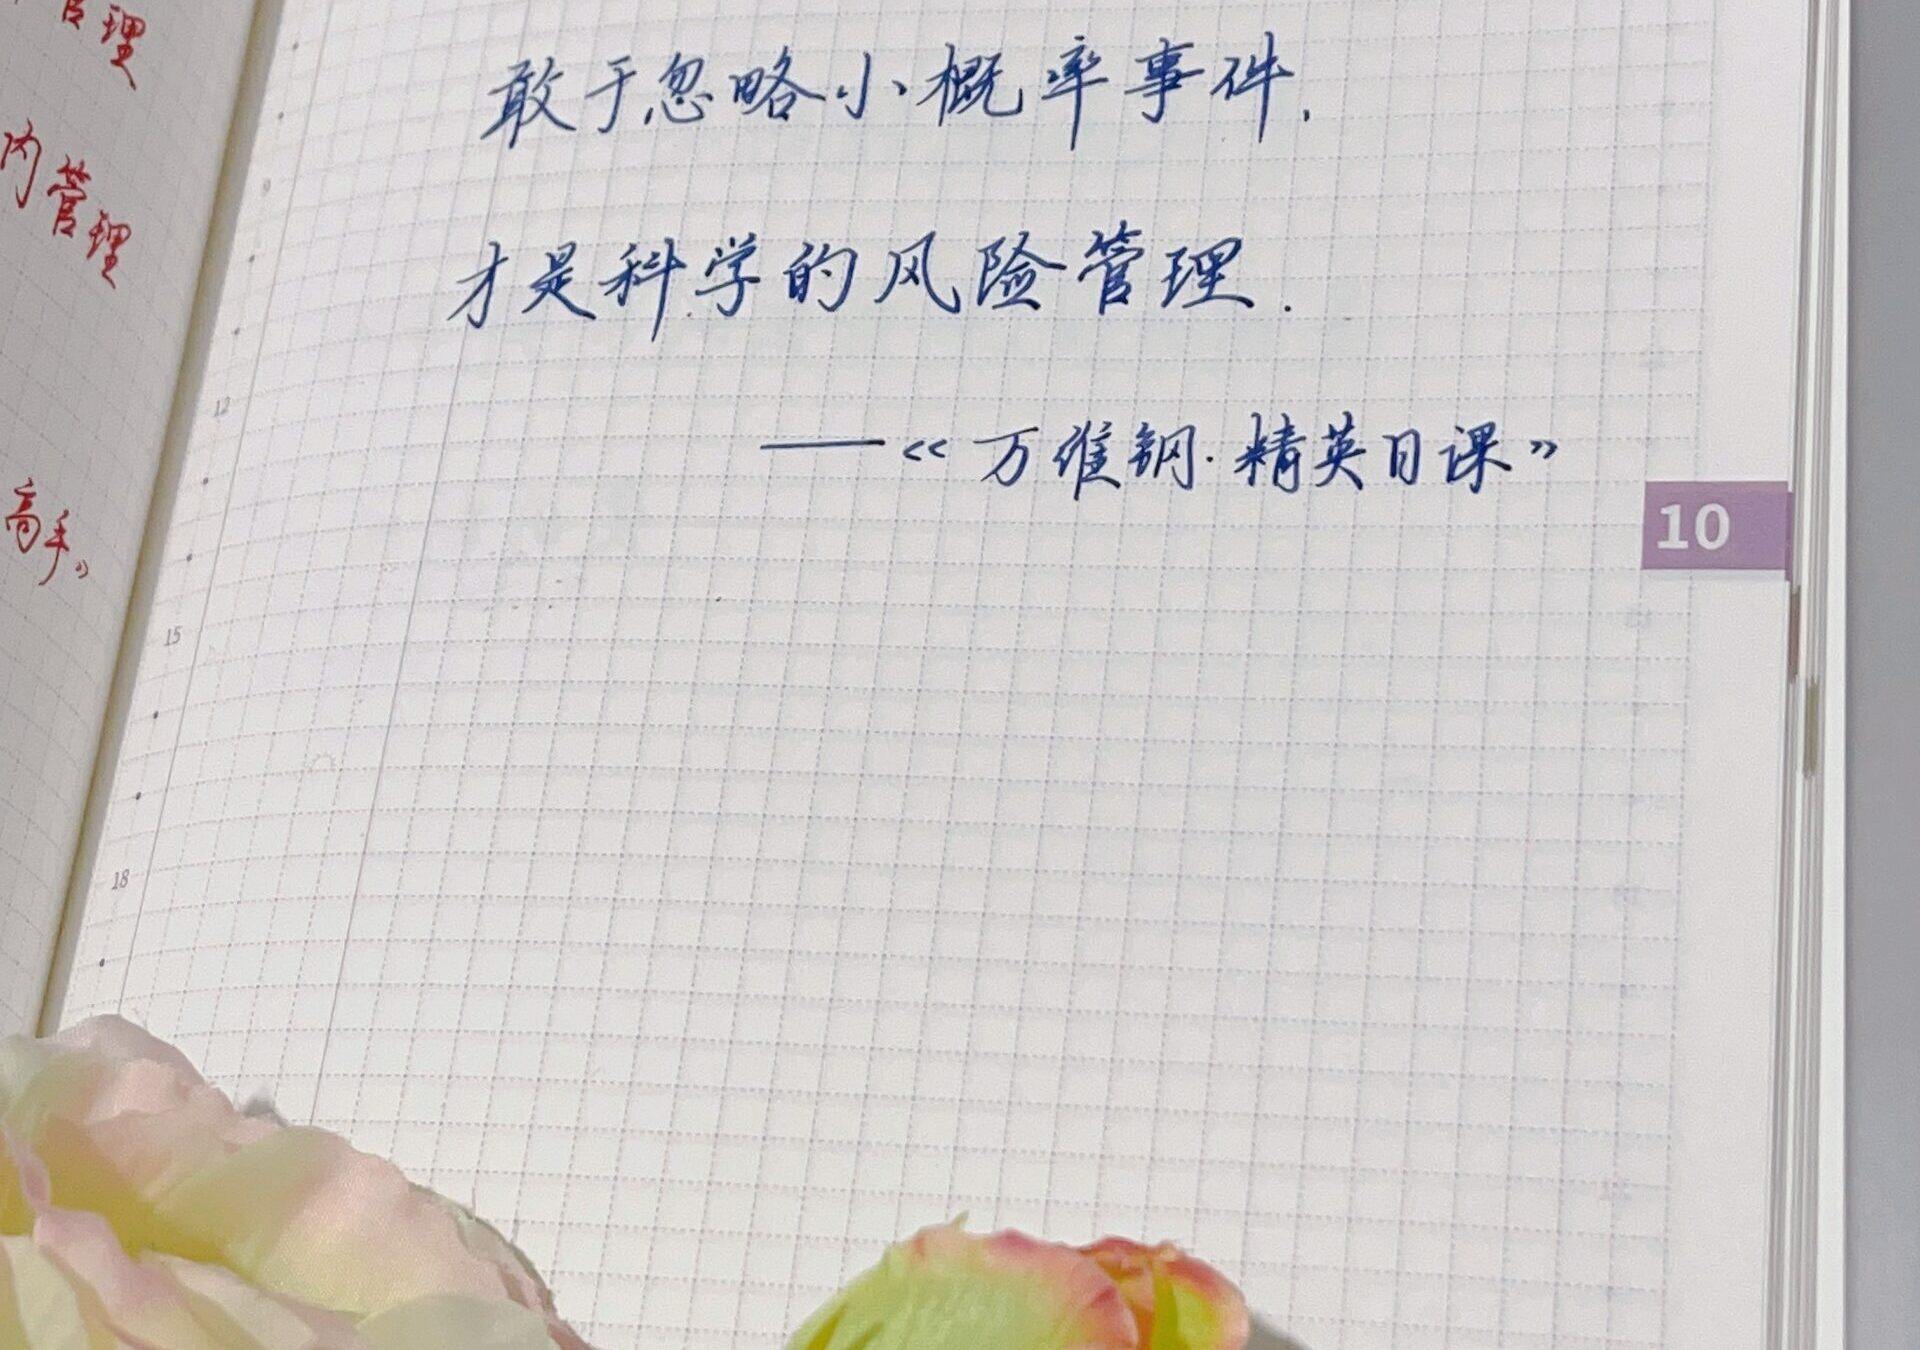 管理
内管理
高手》
敢于忽略小概率事件.
才是科学的风险管理.
——《万维钢·精英日课》
10
12
15
18